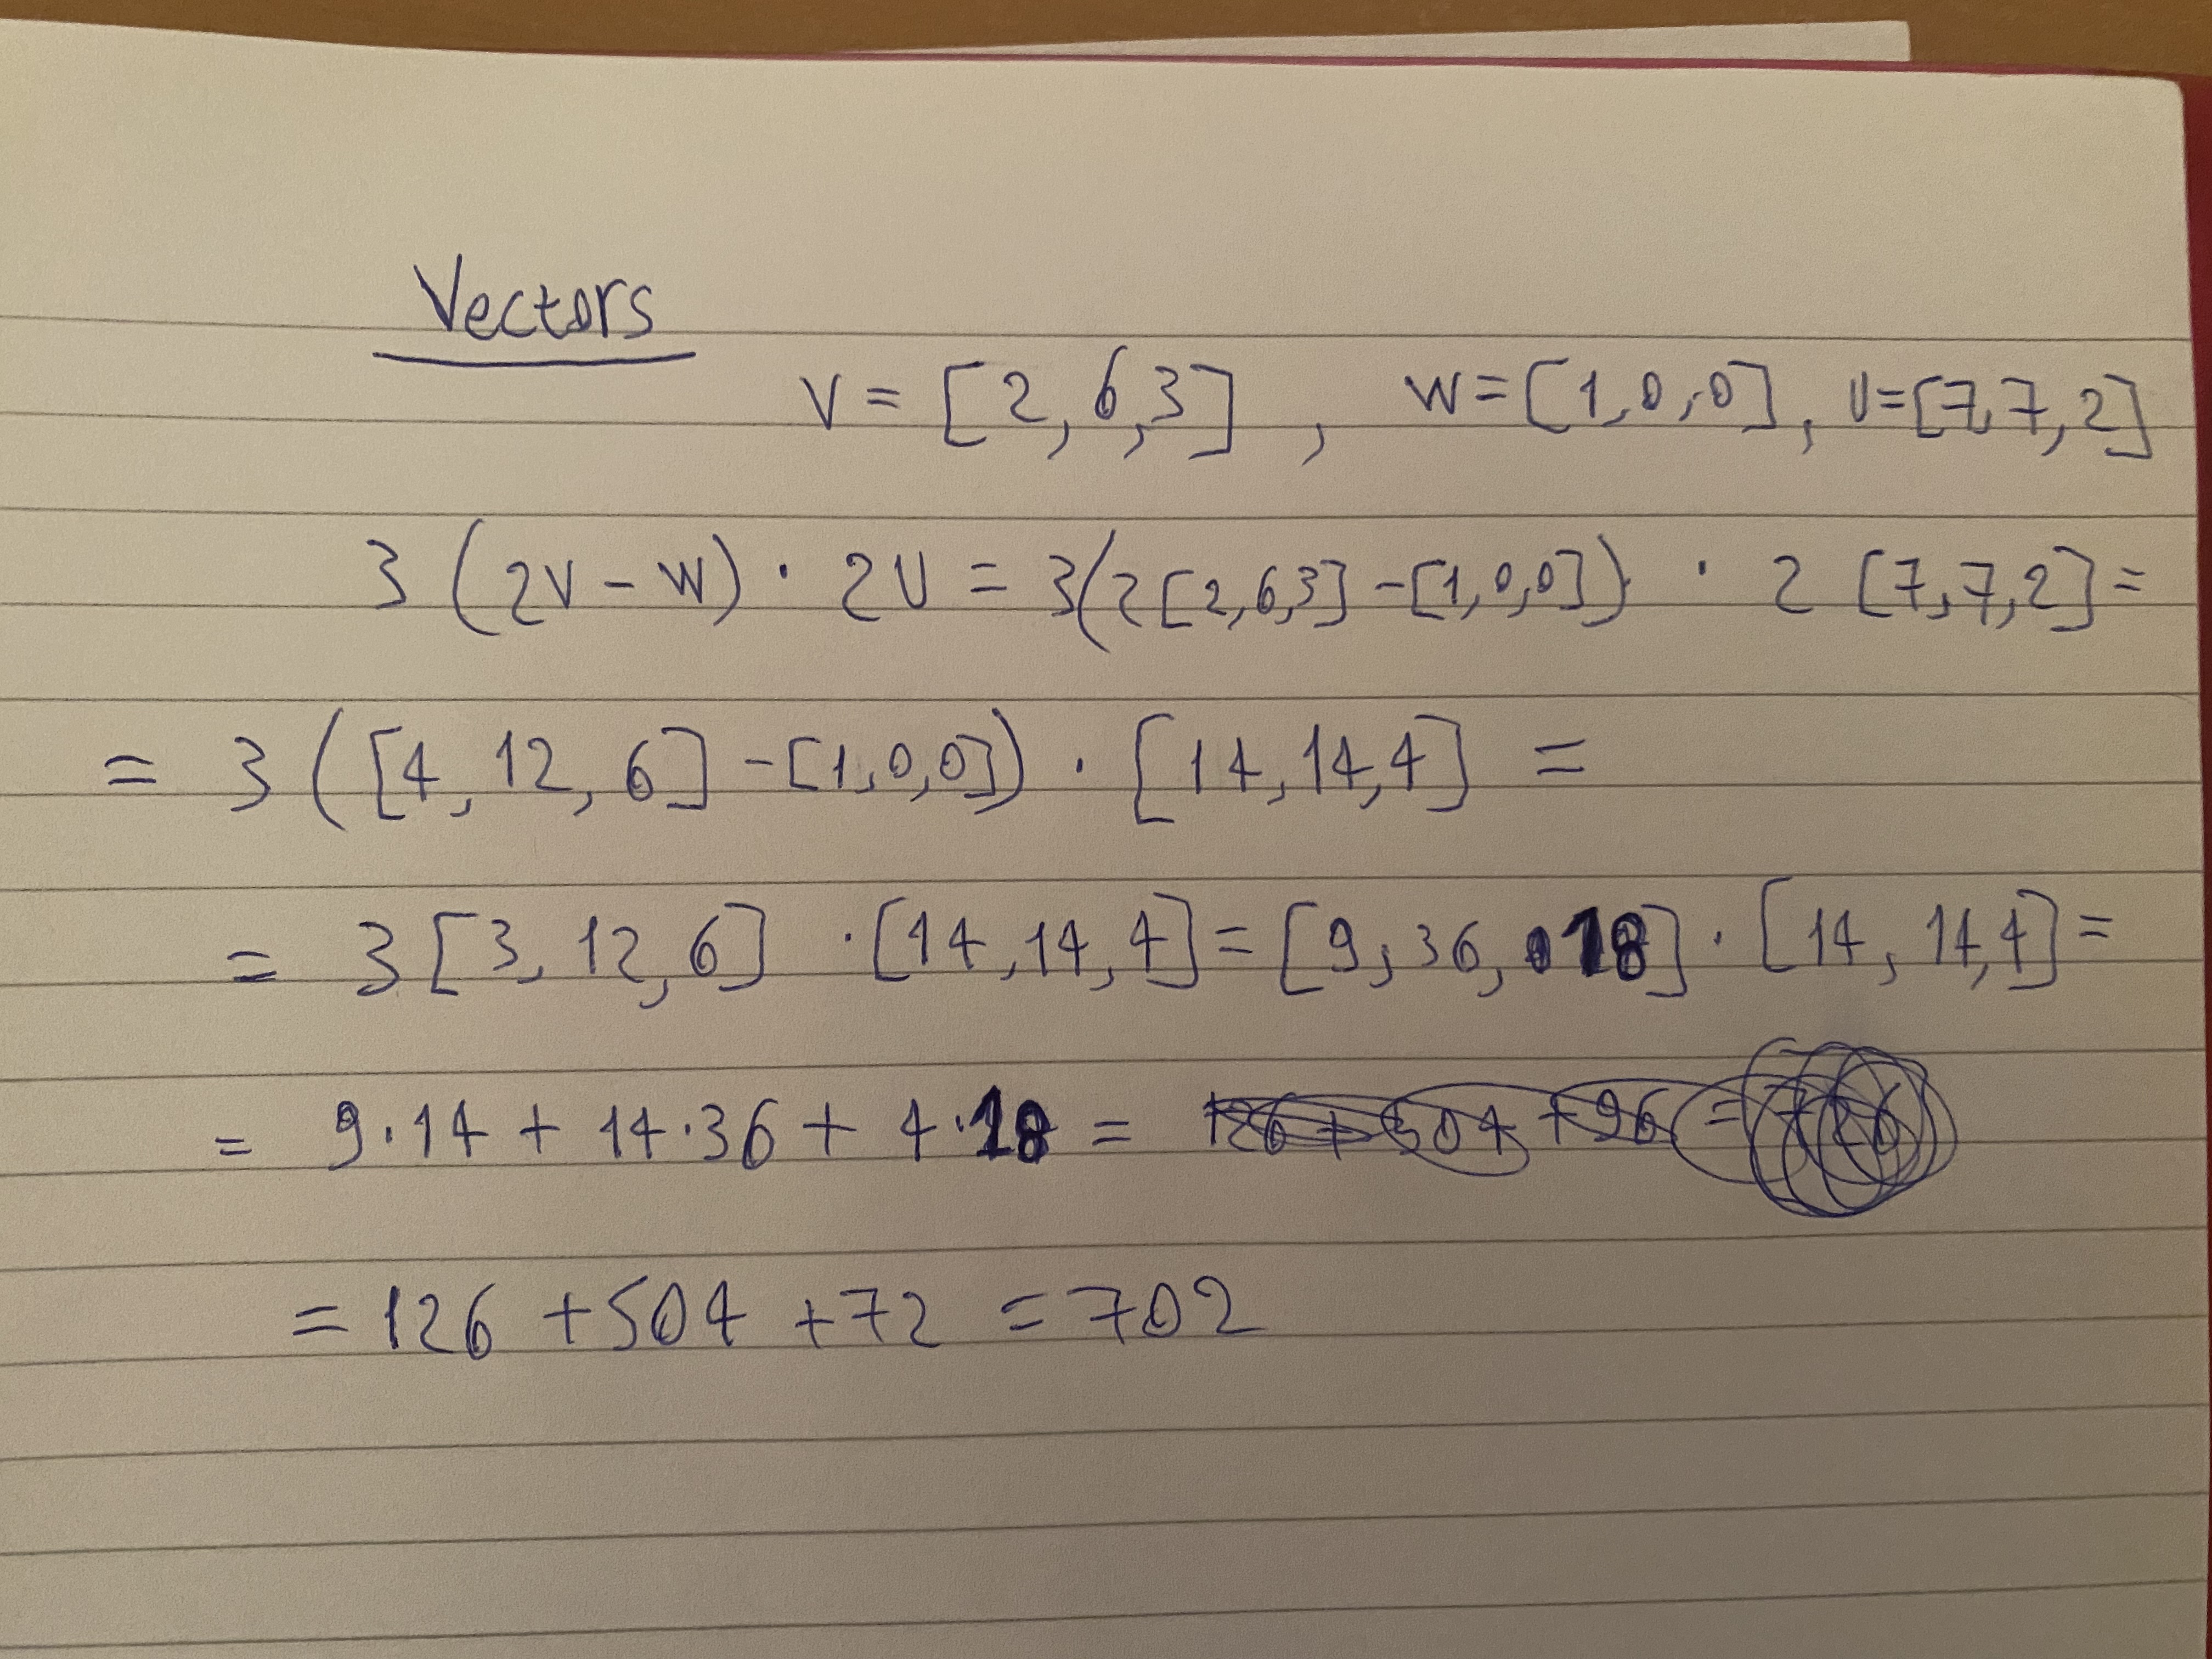 Vectors
V = [2, 6, 3] , W = [1, 0, 0], U = [7, 7, 2]
3 (2V - W) · 2U = 3(2[2, 6, 3] - [1, 0, 0]) · 2 [7, 7, 2] =
= 3 ([4, 12, 6] - [1, 0, 0]) · [14, 14, 4] =
= 3 [3, 12, 6] · [14, 14, 4] = [9, 36, 18] · [14, 14, 4] =
= 9·14 + 14·36 + 4·18 = 126 + 504 + 96 =
= 126 + 504 + 72 = 702